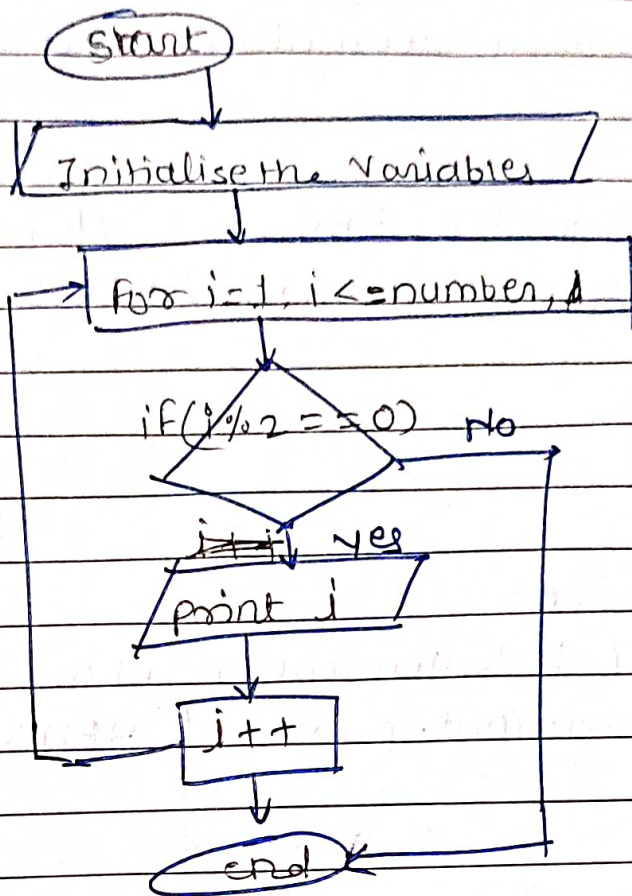 start
Initialise the Variables
for i=1, i<=number, 1
if(i%2==0) No
yes
print i
i++
end